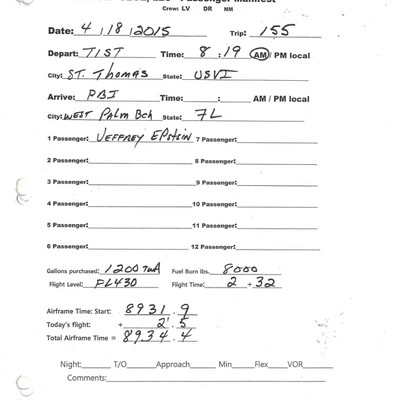 Passenger Manifest
Crew: LV DR NM
Date: 4/18/2015 Trip: 155
Depart: TIST Time: 8:19 AM / PM local
City: ST. THOMAS State: USVI
Arrive: PBI Time: : AM / PM local
City: WEST PALM BCH State: FL
1 Passenger: JEFFREY EPSTEIN 7 Passenger:
2 Passenger: 8 Passenger:
3 Passenger: 9 Passenger:
4 Passenger: 10 Passenger:
5 Passenger: 11 Passenger:
6 Passenger: 12 Passenger:
Gallons purchased: 1200 Fuel Burn lbs. 8000
Flight Level: FL430 Flight Time: 2 + 32
Airframe Time: Start: 8931.9
Today's flight: + 2.5
Total Airframe Time = 8934.4
Night: T/O Approach Min Flex VOR
Comments: